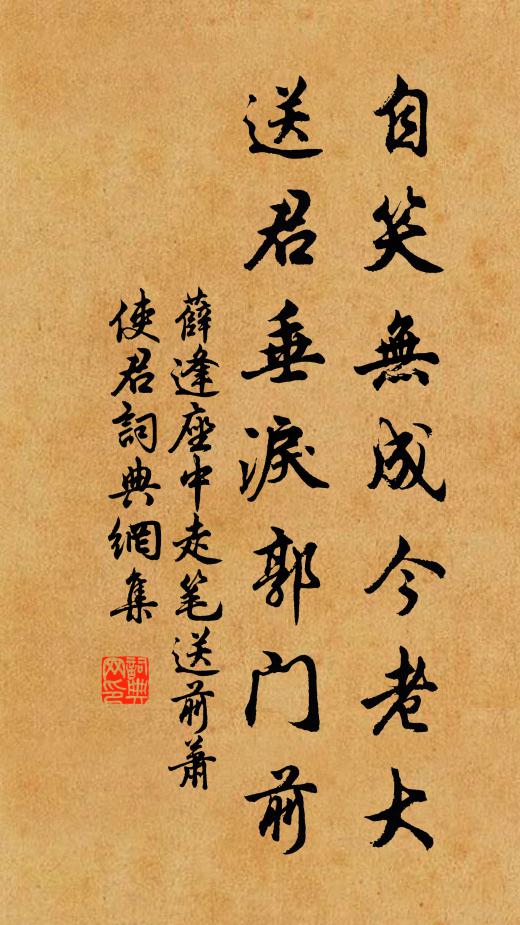 自笑無成今老大
送君垂淚郭门前
薛逢座中走笔送前萧
使君詞典網集
詞典网印